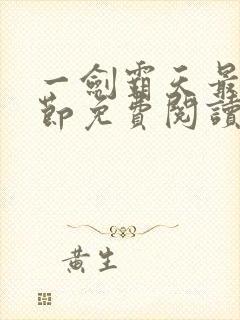 一劍霸天最
節免費閱讀
黃生